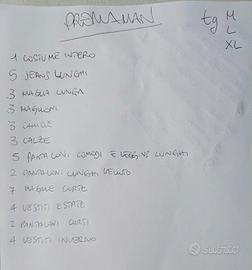 PREMAMAN
tg M
L
XL
1 COSTUME INTERO
5 JEANS LUNGHI
3 MAGLIA LUNGA
3 MAGLIONI
3 CAMICIE
3 CALZE
5 PANTALONI COMODI E LEGGINS LUNGHI
2 PANTALONI LUNGHI VELLUTO
7 MAGLIE CORTE
4 VESTITI ESTATE
2 PANTALONI CORTI
4 VESTITI INVERNO
subito